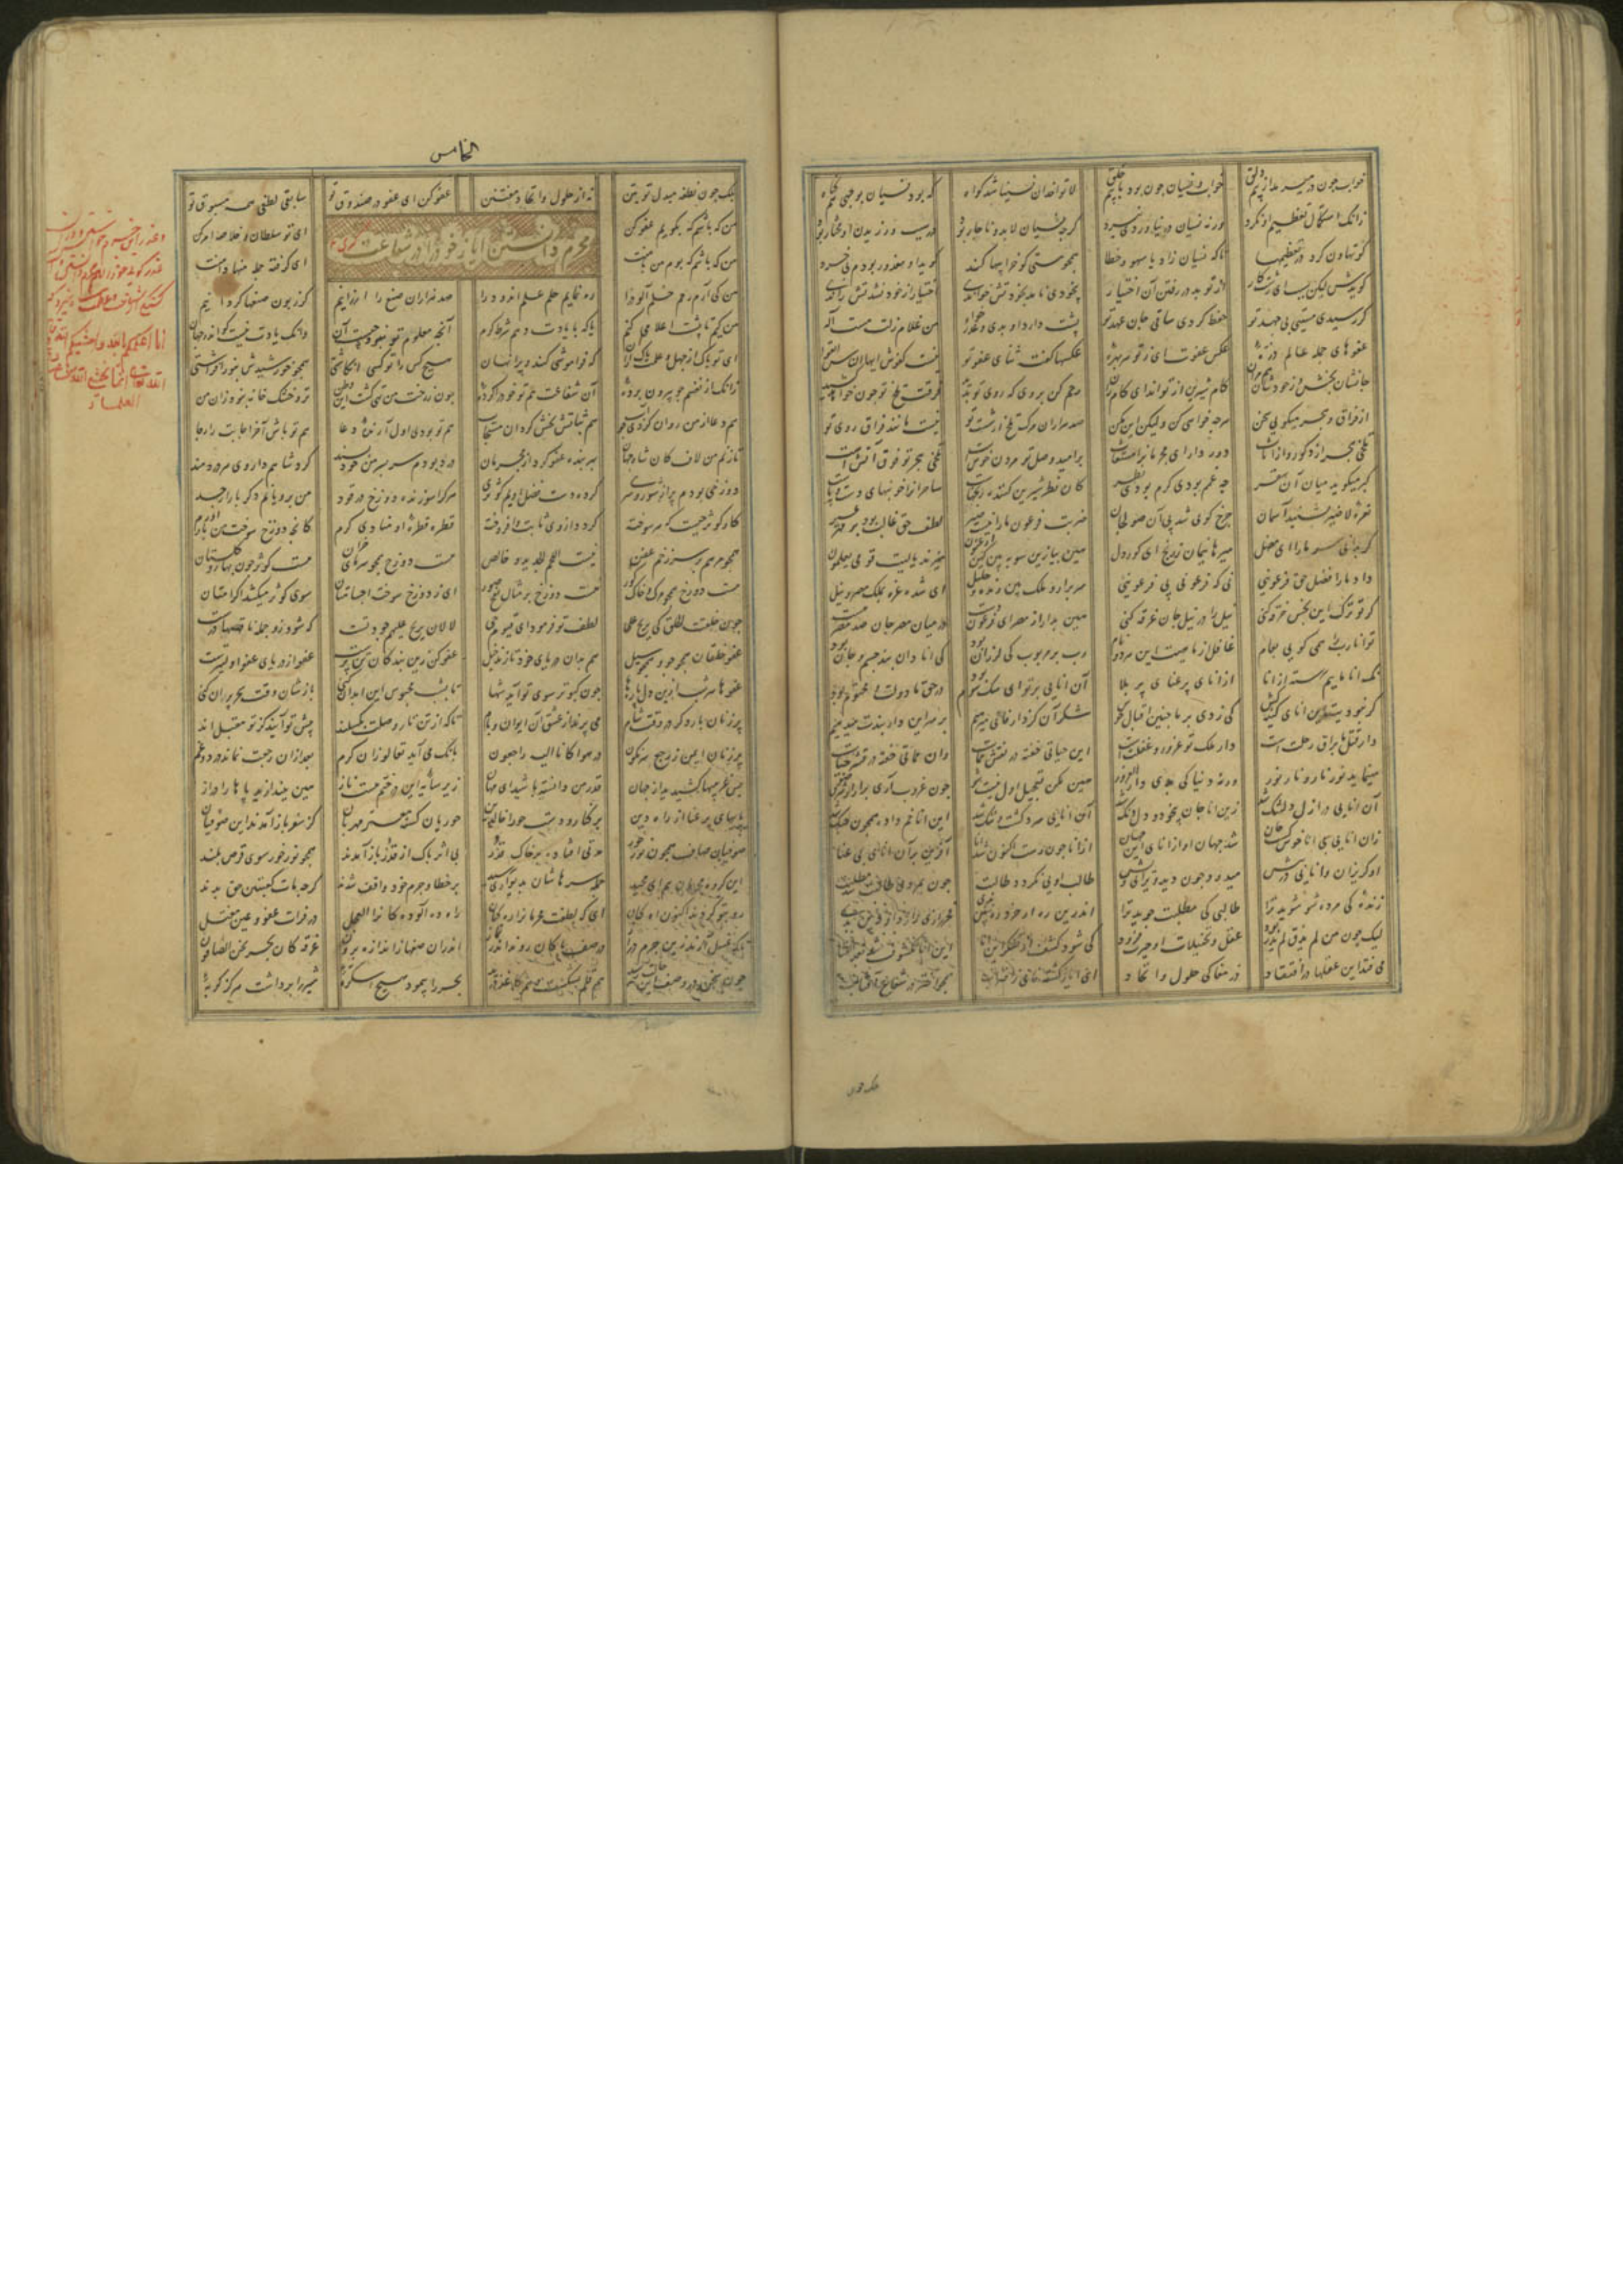 خواب چون در میرمد از بیم دلق خواب و نسیان چون بود با بیم حلق لا تواخذ ان نسینا شد گواه که بود نسیان بوجهی هم گناه
زانک استکمال تعظیم او نکرد ورنه نسیان در نیاوردی نبرد گرچه نسیان لابد و ناچار بود در سبب ورزیدن او مختار بود
کو تهاون کرد در تعظیمها تا که نسیان زاد یا سهو و خطا همچو مستی کو کند گوید او معذور بودم من ز خود
گویدش لیکن سبب ای زشتکار از تو بد در رفتن آن اختیار بیخودی نامد بخود تش خواندی اختیار از خود نشد تش راندی
گر رسیدی مستی بی جهد تو حفظ کردی ساقی جان عهد تو پشت دارت او بدی و عذرخواه من غلام زلت مست اله
عفوهای جمله عالم ذره عکس عفوت ای ز تو هر بهره عفوها گفته ثنای عفو تو نیست کفوش ایها الناس اتقوا
جانشان بخش و ز خودشان هم مران کام شیرین از تو اند ای کامران رحم کن بر وی که روی تو بدید فرقت تلخ تو چون خواهد کشید
از فراق و هجر میگویی سخن هرچه خواهی کن ولیکن این مکن صد هزاران مرگ تلخ از شست تو نیست مانند فراق روی تو
تلخی هجر از ذکور و از اناث دور دار ای مجرمانرا مستغاث بر امید وصل تو مردن خوشست تلخی هجر تو فوق آتشست
گبر میگوید میان آن سقر چه غمم بودی گرم بودی نظر کان نظر شیرین کننده رنجهاست ساحرانرا خونبهای دست و پاست
نعره لا ضیر بشنید آسمان چرخ گویی شد پی آن صولجان ضربت فرعون ما را نیست ضیر لطف حق غالب بود بر قهر غیر
گر بدانی سر ما را ای مضل میرهانیمان ز رنج ای کوردل هین بیا زین سو ببین کین ارغنون میزند یا لیت قومی یعلمون
داد ما را فضل حق فرعونیی نی که فرعونی پی فرعونیی سر برآر و ملک بین زنده و جلیل ای شده غره بملک مصر و نیل
گر تو ترک این نجس خرقه کنی نیل را در نیل جان غرقه کنی هین بدار از مصر ای فرعون دست در میان مصر جان صد مصر هست
تو انا رب همی گویی بعام غافل از ماهیت این هر دو نام رب بر مربوب کی لرزان بود کی انا دان بند جسم و جان بود
نک انا ماییم رسته از انا از انای پر عنای پر بلا آن انایی بر تو ای سگ شوم بود در حق ما دولت محتوم بود
گر نبودیت این انای کینه کش کی زدی بر ما چنین اقبال خوش شکر آن کز دار فانی میرهیم بر سر این دار پندت میدهیم
دار قتل ما براق رحلتست دار ملک تو غرور و غفلتست این حیاتی خفیه در نقش ممات وان مماتی خفیه در قشر حیات
مینماید نور نار و نار نور ورنه دنیا کی بدی دار الغرور هین مکن تعجیل اول نیست شو چون غروب آری برآ از شرق ضو
آن انایی در ازل دلتنگ شد زین انا جان بیخود و دل دنگ شد آن انایی سرد گشت و ننگ شد این انا خم داد همچون چنگ شد
زان انایی بی انا خوش گشت جان شد جهان او از انای این جهان از انا چون رست اکنون شد انا آفرین بر آن انای بی عنا
او گریزان و انایی در پیش میدود چون دید ویرا بی ویش طالب اویی نگردد طالبت چون بمردی طالبت شد مطلبت
زنده کی مرده شو شوید ترا طالبی کی مطلبت جوید ترا اندرین ره ار خرد ره بین بدی فخر رازی رازدار دین بدی
لیک چون من لم یذق لم یدر بود عقل و تخییلات او حیرت فزود کی شود کشف از تفکر این انا این انا مکشوف شد بعد الفنا
می فتد این عقلها در افتقاد در مغاکی حلول و اتحاد ای ایاز گشته فانی ز اقتراب همچو اختر در شعاع آفتاب
بلک چون
الخامس
بلک چون نطفه مبدل تو بتن نه از حلول و اتحاد مفتتن عفو کن ای عفو در صندوق تو سابق لطفی همه مسبوق تو
من که باشم که بگویم عفو کن ای تو سلطان و خلاصه امر کن
من که باشم که بوم من با منت ای گرفته جمله منها دامنت
مجرم دانستن ایاز خود را در شفاعت گری
من کی آرم رحم خلم آلود را ره نمایم حلم علم اندود را صد هزاران صفع را ارزانیم گر زبون صفعها گردانیم
من کیم تا پیشت اعلامی کنم یا که با یادت دهم شرط کرم آنچه معلوم تو نبود چیست آن وانک یادت نیست کو اندر جهان
ای تو پاک از جهل و علمت پاک ازان که فراموشی کند بر وی نهان هیچ کس را تو کسی انگاشتی همچو خورشیدش بنور افراشتی
زانک از نقشم چو بیرون برده آن شفاعت هم تو خود را کرده چون ز رخت من تهی گشت این وطن تر و خشک خانه نبود زان من
هم دعا از من روان کردی چو آب هم ثباتش بخش و گردان مستجاب هم تو بودی اول آرنده دعا هم تو باش آخر اجابت را رجا
تا زنم من لاف کان شاه جهان بهر بنده عفو کرد از مجرمان درد بودم سر بسر من خودپسند کرد شاهم داروی هر دردمند
دوزخی بودم پر از شور و شری کرد دست فضل اویم کوثری هرکرا سوزنده دوزخ در قود من برویانم دگر بار از جسد
کار کوثر چیست که هر سوخته گردد از وی نابت و افروخته قطره قطره او منادی کرم کانچه دوزخ سوخت من باز آورم
همچو مرهم بر سر زخم عفن هست دوزخ همچو سرمای خزان هست کوثر چون بهار گلستان
هست دوزخ همچو مرگ و خاک گور هست دوزخ بر مثال نفخ صور ای ز دوزخ سوخت اجسامتان سوی کوثر میکشد اکرامتان
چون خلقت الخلق کی یربح علی لطف تو فرمود ای قیوم حی لا لان یربح علیهم جود تست که شود زو جمله ناقصها درست
عفو خلقان همچو جو و همچو سیل هم بدان دریای خود تازند خیل عفو کن زین بندگان تن پرست عفو از دریای عفو اولیترست
عفوها هر شب ازین دل پارها چون کبوتر سوی تو آید شها تا بشب محبوس این ابدان کنی بازشان وقت سحر پران کنی
پر زنان بار دگر در وقت شام می پرند از عشق آن ایوان و بام تا که از تن تار وصلت بگسلند پیش تو آیند کز تو مقبل اند
پر زنان ایمن ز رجع سرنگون در هوا کانا الیه راجعون بانگ می آید تعالوا زان کرم بعد ازان رجعت نماند درد و غم
بس غریبیها کشیدید از جهان قدر من دانسته باشید ای مهان زیر سایه این درختم مست ناز هین بیندازید پاها را دراز
پایهای پر عنا از راه دین بر کنار و دست حوران خالدین حوریان گشته مغمز مهربان کز سفر باز آمدند این صوفیان
صوفیان صافیان چون نور خور مدتی افتاده بر خاک و قذر بی اثر پاک از قذر باز آمدند همچو نور خور سوی قرص بلند
این گروه مجرمان هم ای مجید جمله سرهاشان بدیواری رسید بر خطا و جرم خود واقف شدند گرچه مات کعبتین حق بدند
رو بتو کردند اکنون اه کنان ای که لطفت مجرمانرا ره کنان راه ده آلودگانرا العجل در فرات عفو و عین مغتسل
تا که غسل آرند زین جرم دراز در صف پاکان روند اندر نماز اندران صفها ز اندازه برون غرقگان بحر نحن الصافون
چون سخن در وصف این حالت رسید هم قلم بشکست و هم کاغذ درید بحر را پیمود هیچ اسکره شیر را برداشت هرگز بره
انا اعلمکم بالله و اخشیکم لله
انما یخشی الله
العلماء